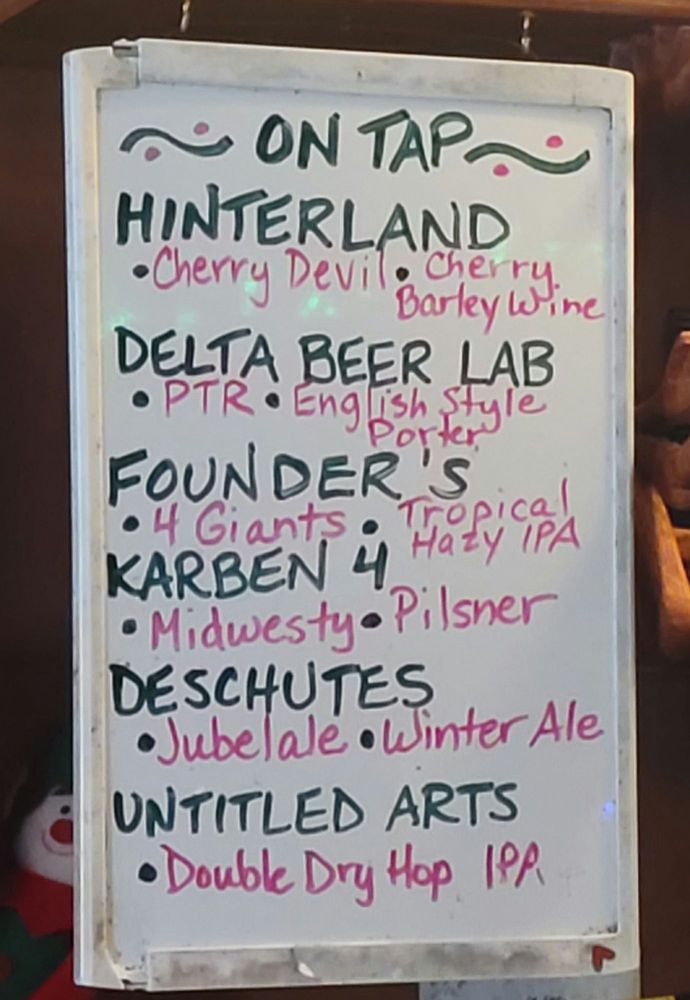 ~ ON TAP ~
HINTERLAND
• Cherry Devil • Cherry
Barley Wine
DELTA BEER LAB
• PTR • English Style
Porter
FOUNDER'S
• 4 Giants • Tropical
Hazy IPA
KARBEN 4
• Midwesty • Pilsner
DESCHUTES
• Jubelale • Winter Ale
UNTITLED ARTS
• Double Dry Hop IPA